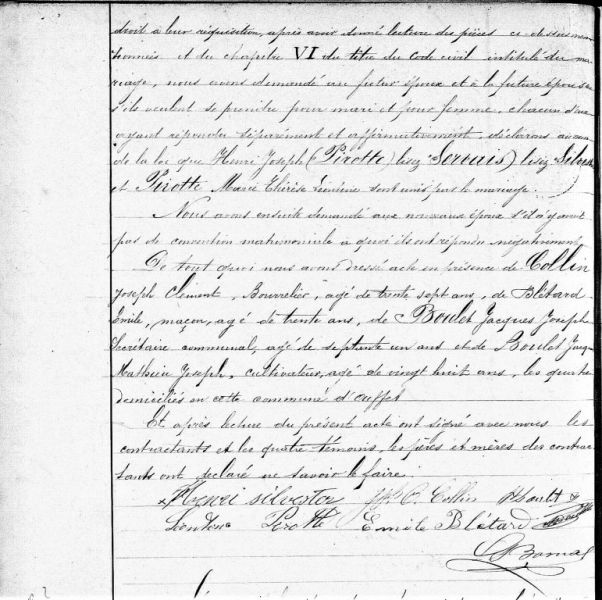 droit à leur réquisition, après avoir donné lecture des pièces ci-dessus men
tionnées et du chapitre VI du titre du code civil intitulé du ma
riage, nous avons demandé au futur époux et à la future épouse
s'ils veulent se prendre pour mari et pour femme, chacun d'eux
ayant répondu séparément et affirmativement, déclarons au nom
de la loi que Henri Joseph (Pirotte) lisez Servais) lisez
et Pirotte Marie Thérèse Léontine sont unis par le mariage.
Nous avons ensuite demandé aux nouveaux époux s'il n'y avait
pas de convention matrimoniale à quoi ils ont répondu négativement
De tout quoi nous avons dressé acte en présence de Collin
Joseph Clément, Bourrelier, agé de trente sept ans, de Blétard
Emile, maçon, agé de trente ans, de Boulet Jacques Joseph
Secrétaire communal, agé de septante un ans et de Boulet Jacq
Mathieu Joseph, cultivateur, agé de vingt huit ans, les quatre
domiciliés en cette commune d'ouffet
Et après lecture du présent acte ont signé avec nous les
contractants et les quatre témoins, les pères et mères des contrac
tants ont déclaré ne savoir le faire.
Henri silvestre C. Collin
Léontine Pirotte Emile Blétard